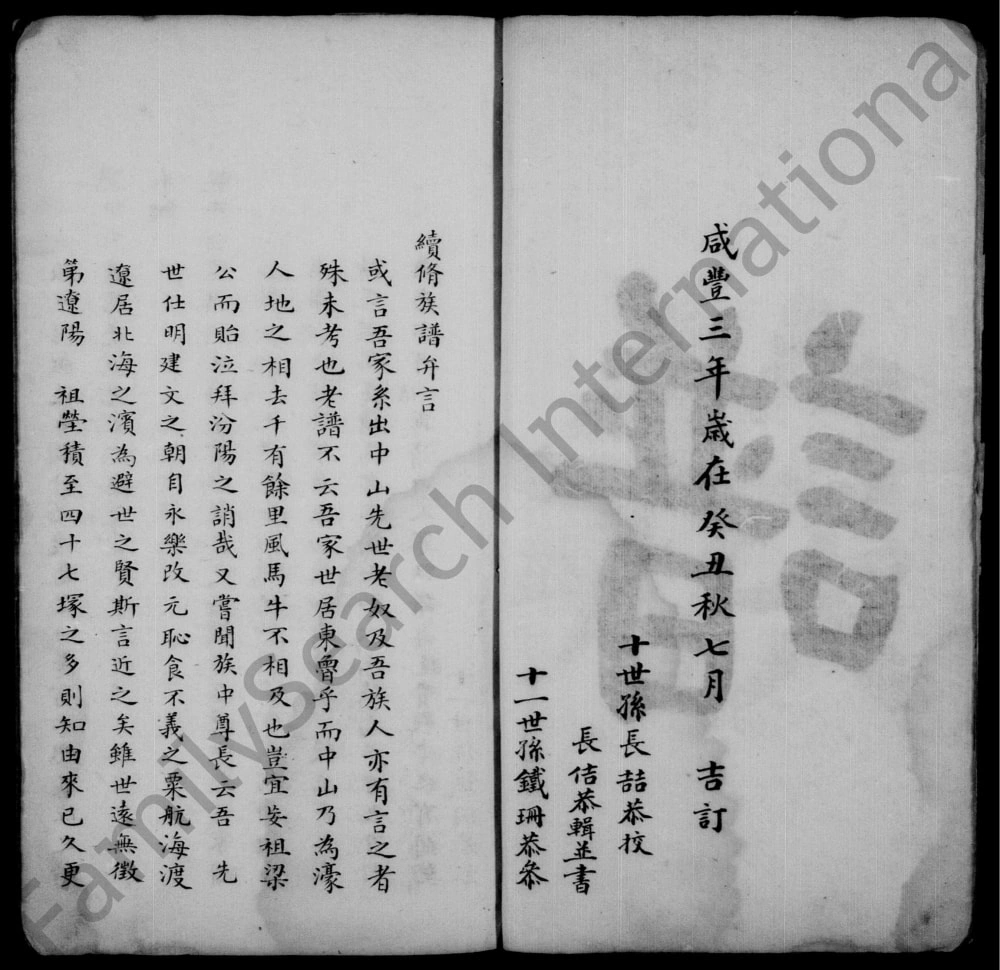 咸豐三年歲在癸丑秋七月 吉訂
十世孫長喆恭校
長佶恭輯並書
十一世孫鐵珊恭叅
續脩族譜弁言
或言吾家系出中山先世老奴及吾族人亦有言之者
殊未考也老譜不云吾家世居東魯乎而中山乃為濠
人地之相去千有餘里風馬牛不相及也豈宜妄祖梁
公而貽泣拜汾陽之誚哉又嘗聞族中尊長云吾 先
世仕明建文之朝自永樂改元恥食不義之粟航海渡
遼居北海之濱為避世之賢斯言近之矣雖世遠無徵
第遼陽 祖塋積至四十七塚之多則知由來已久更
譜
FamilySearch International